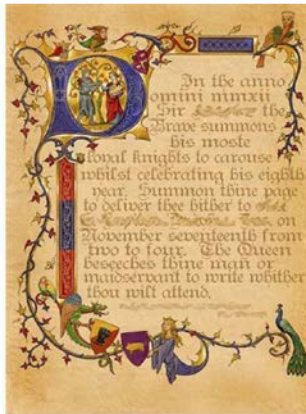 In the anno
omini mmxii
Sir the
Brave summons
his moste
loyal knights to carouse
whilst celebrating his eighth
year. Summon thine page
to deliver thee hither to
on
November seventeenth from
two to four. The Queen
beseeches thine man or
maidservant to write whither
thou wilt attend.